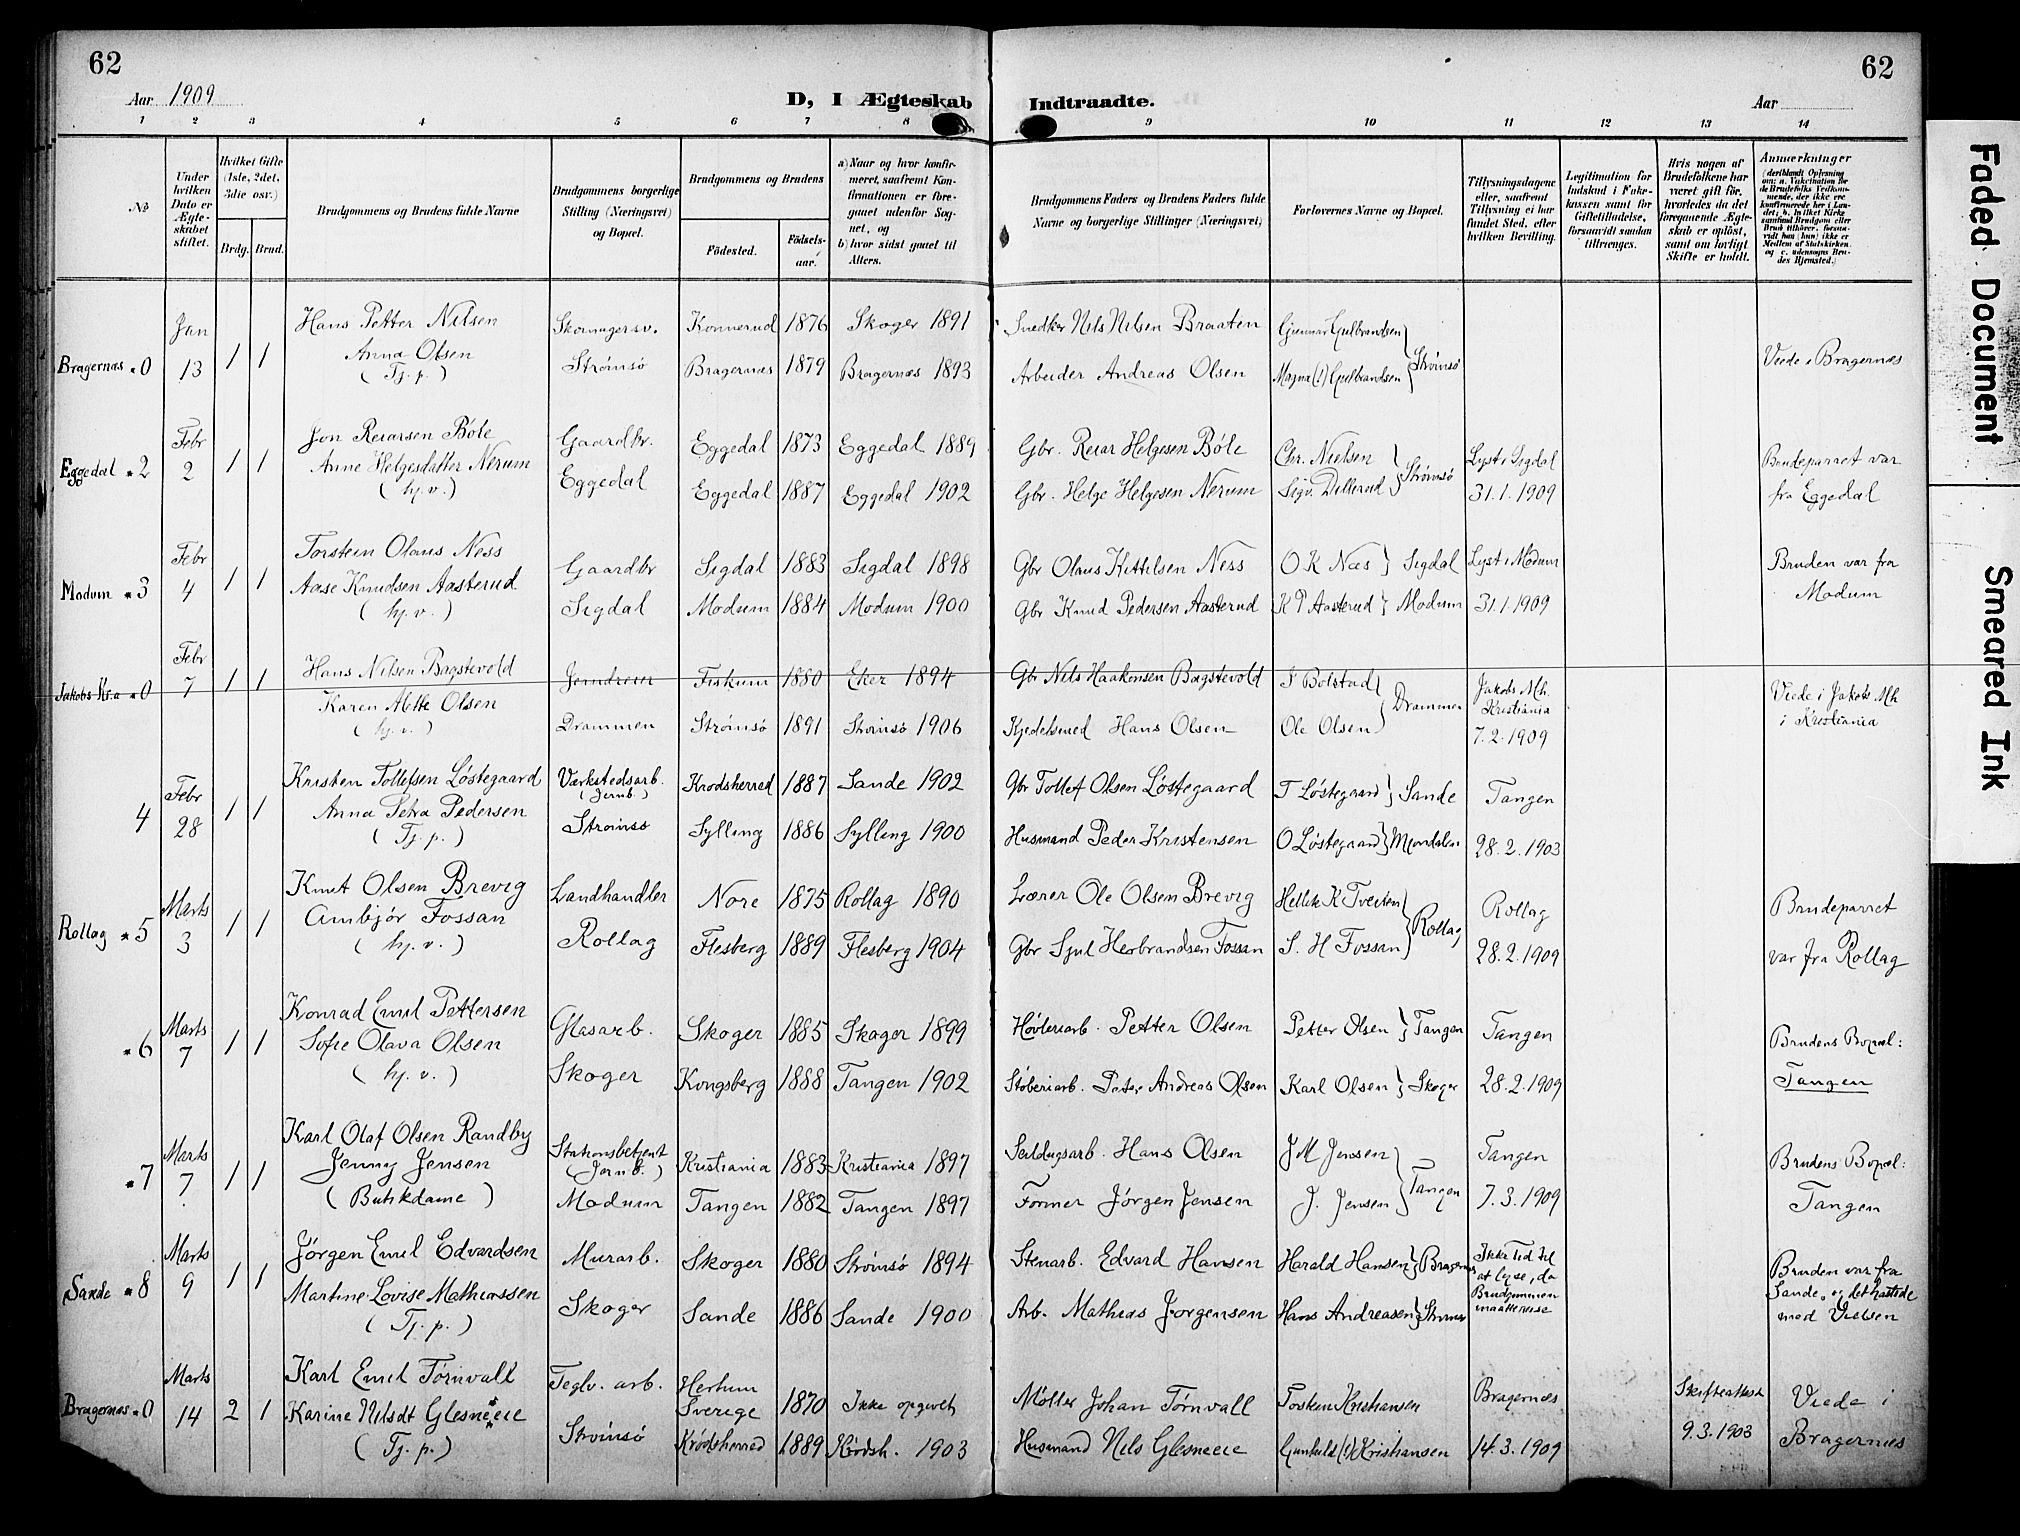 62
62
Aar 1909
D, I Ægteskab Indtraadte.
Aar
1 2 3 4 5 6 7 8 9 10 11 12 13 14
№
Under hvilken Dato er Ægteskabet stiftet.
Hvilket Gifte (1ste, 2det, 3die osv.)
Brdg. Brud.
Brudgommens og Brudens fulde Navne
Brudgommens borgerlige Stilling (Næringsvei) og Bopæl.
Brudgommens og Brudens
Födested.
Födsels-aar.
a) Naar og hvor konfirmeret, saafremt Konfirmationen er foregaaet udenfor Sognet, og
b) hvor sidst gaaet til Alters.
Brudgommens Faders og Brudens Faders fulde Navne og borgerlige Stillinger (Næringsvei)
Forlovernes Navne og Bopæl.
Tillysningsdagene eller, saafremt Tillysning ei har fundet Sted, efter hvilken Bevilling.
Legitimation for Indskud i Enkekassen samt for Giftetilladelse, forsaavidt saadan tiltrænges.
Hvis nogen af Brudefolkene har været gift før, hvorledes da det foregaaende Ægteskab er opløst, samt om lovligt Skifte er holdt.
Anmærkninger
Bragernæs 0 Jan 13 1 1
Hans Petter Nilsen
Anna Olsen
(Tj. p.)
Skomagersv.
Strømsö
Konnerud 1876 Skoger 1891
Bragernæs 1879 Bragernæs 1893
Snedker Nils Nilsen Braaten
Arbeider Andreas Olsen
Gunnar Gulbrandsen
Magna (!) Gulbrandsen
Strømsö
Viede i Bragernæs
Eggedal 2 Febr 2 1 1
Jon Reiarsen Böle
Anne Helgesdatter Nerum
(hj. v.)
Gaardbr.
Eggedal
Eggedal 1873 Eggedal 1889
Eggedal 1887 Eggedal 1902
Gbr. Reiar Helgesen Böle
Gbr. Helge Helgesen Nerum
Chr. Nielsen
Sigv. Dillerud
Strømsö
Lyst i Sigdal
31.1.1909
Brudeparret var
fra Eggedal
Modum 3 Febr 4 1 1
Torstein Olaus Ness
Aase Knudsen Aasterud
(hj. v.)
Gaardbr
Sigdal
Sigdal 1883 Sigdal 1898
Modum 1884 Modum 1900
Gbr Olaus Kittilsen Ness
Gbr Knud Pedersen Aasterud
O K Næs } Sigdal
K P Aasterud } Modum
Lyst i Modum
31.1.1909
Bruden var fra
Modum
Jakobs Kr.a 0 Febr 7 1 1
Hans Nilsen Bagstevold
Karen Mette Olsen
(hj. v.)
Jerndreier
Drammen
Fiskum 1880 Eker 1894
Strømsö 1891 Strömsö 1906
Gbr Nils Haakonsen Bagstevold
Kjedelsmed Hans Olsen
Bolstad
Ole Olsen
Drammen
Jakobs Mh.
Kristiania
7.2.1909
Viede i Jakobs Mh
i Kristiania
4 Febr 28 1 1
Kristen Tollefsen Løstegaard
Anna Petra Pedersen
(Tj. p.)
Værkstedsarb.
(Jernb.)
Strømsö
Krødsherred 1887 Sande 1902
Sylling 1886 Sylling 1900
Gbr Tollef Olsen Løstegaard
Husmand Peder Kristensen
T Løstegaard } Sande
O Løstegaard } Mjøndalen
Tangen
28.2.1903
Rollag 5 Marts 3 1 1
Knut Olsen Brevig
Ambjör Fossan
(hj. v.)
Landhandler
Rollag
Nore 1875 Rollag 1890
Flesberg 1889 Flesberg 1904
Lærer Ole Olsen Brevig
Gbr Sjul Herbrandsen Fossan
Hellik K Tveiten
S. H Fossan
Rollag
Rollag
28.2.1909
Brudeparret
var fra Rollag
6 Marts 7 1 1
Konrad Emil Pettersen
Sofie Olava Olsen
(hj. v.)
Glasarb.
Skoger
Skoger 1885 Skoger 1899
Kongsberg 1888 Tangen 1902
Høvleriarb. Petter Olsen
Støberiarb. Peter Andreas Olsen
Petter Olsen } Tangen
Karl Olsen } Skoger
Tangen
28.2.1909
Brudens Bopæl:
Tangen
7 Marts 7 1 1
Karl Olaf Olsen Randby
Jenny Jensen
(Butikdame)
Stationsbetjent
(Jernb.)
Modum
Kristiania 1883 Kristiania 1897
Tangen 1882 Tangen 1897
Seildugsarb. Hans Olsen
Former Jørgen Jensen
J M Jensen
J. Jensen
Tangen
Tangen
7.3.1909
Brudens Bopæl:
Tangen
Sande 8 Marts 9 1 1
Jørgen Emil Edvardsen
Martine Lovise Mathiassen
(Tj. p.)
Murarb.
Skoger
Skoger 1880 Strømsö 1894
Sande 1886 Sande 1900
Stenarb. Edvard Hansen
Arb. Mathias Jørgensen
Harald Hansen } Bragernæs
Hans Andreasen }
Ikke tid til
at lyse, da
Brudgommen
maatte reise
Bruden var fra
Sande, og det hastede
med Vielsen
Bragernæs 0 Marts 14 2 1
Karl Emil Törnvall
Karine Nilsdt Glesneeie
(Tj. p.)
Teglv. arb.
Strömsö
Sverige 1870 Ikke opgivet
Krødsherred 1889 Krødsh. 1903
Møller Johan Törnvall
Husmand Nils Glesneeie
Torsken Kristiansen
Gunhild (!) Kristiansen
Bragernæs
14.3.1909
Skifteattest
9.3.1903
Viede i
Bragernæs
Faded Document
Smeared Ink